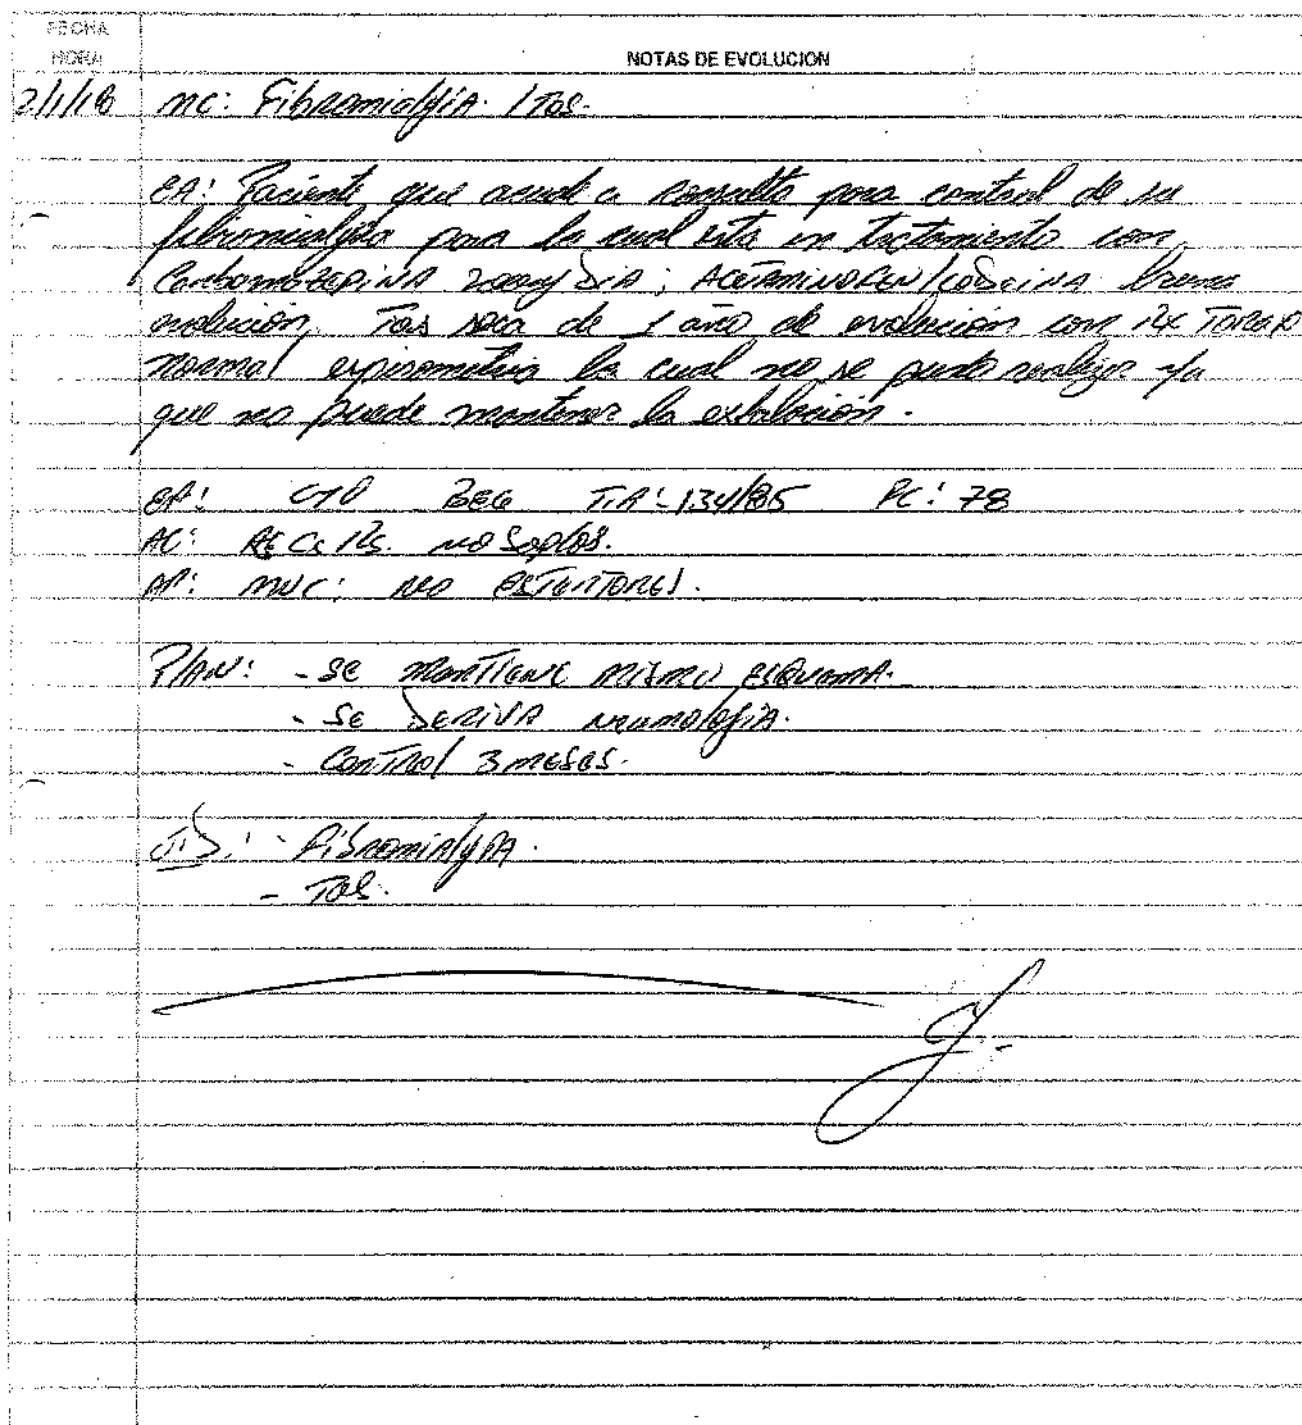 FECHA
HORA
NOTAS DE EVOLUCION
2/1/18 MC: Fibromialgia / Tos.
EA: Paciente que acude a consulta para control de su
fibromialgia para la cual esta en tratamiento con
Carbamazepina 200mg DIA; ACETAMINOFEN/CODEINA buena
evolución, Tos seca de 1 año de evolución con RX TORAX
normal espirometria la cual no se pudo realizar ya
que no puede mantener la exhalación.
EF: BEG T/A: 134/85 FC: 78
AC: no soplos.
AP: MVC; NO ESTERTORES.
PLAN: - SE MANTIENE MISMO ESQUEMA.
- SE DERIVA NEUMOLOGIA.
- CONTROL 3 MESES.
- Fibromialgia.
- Tos.